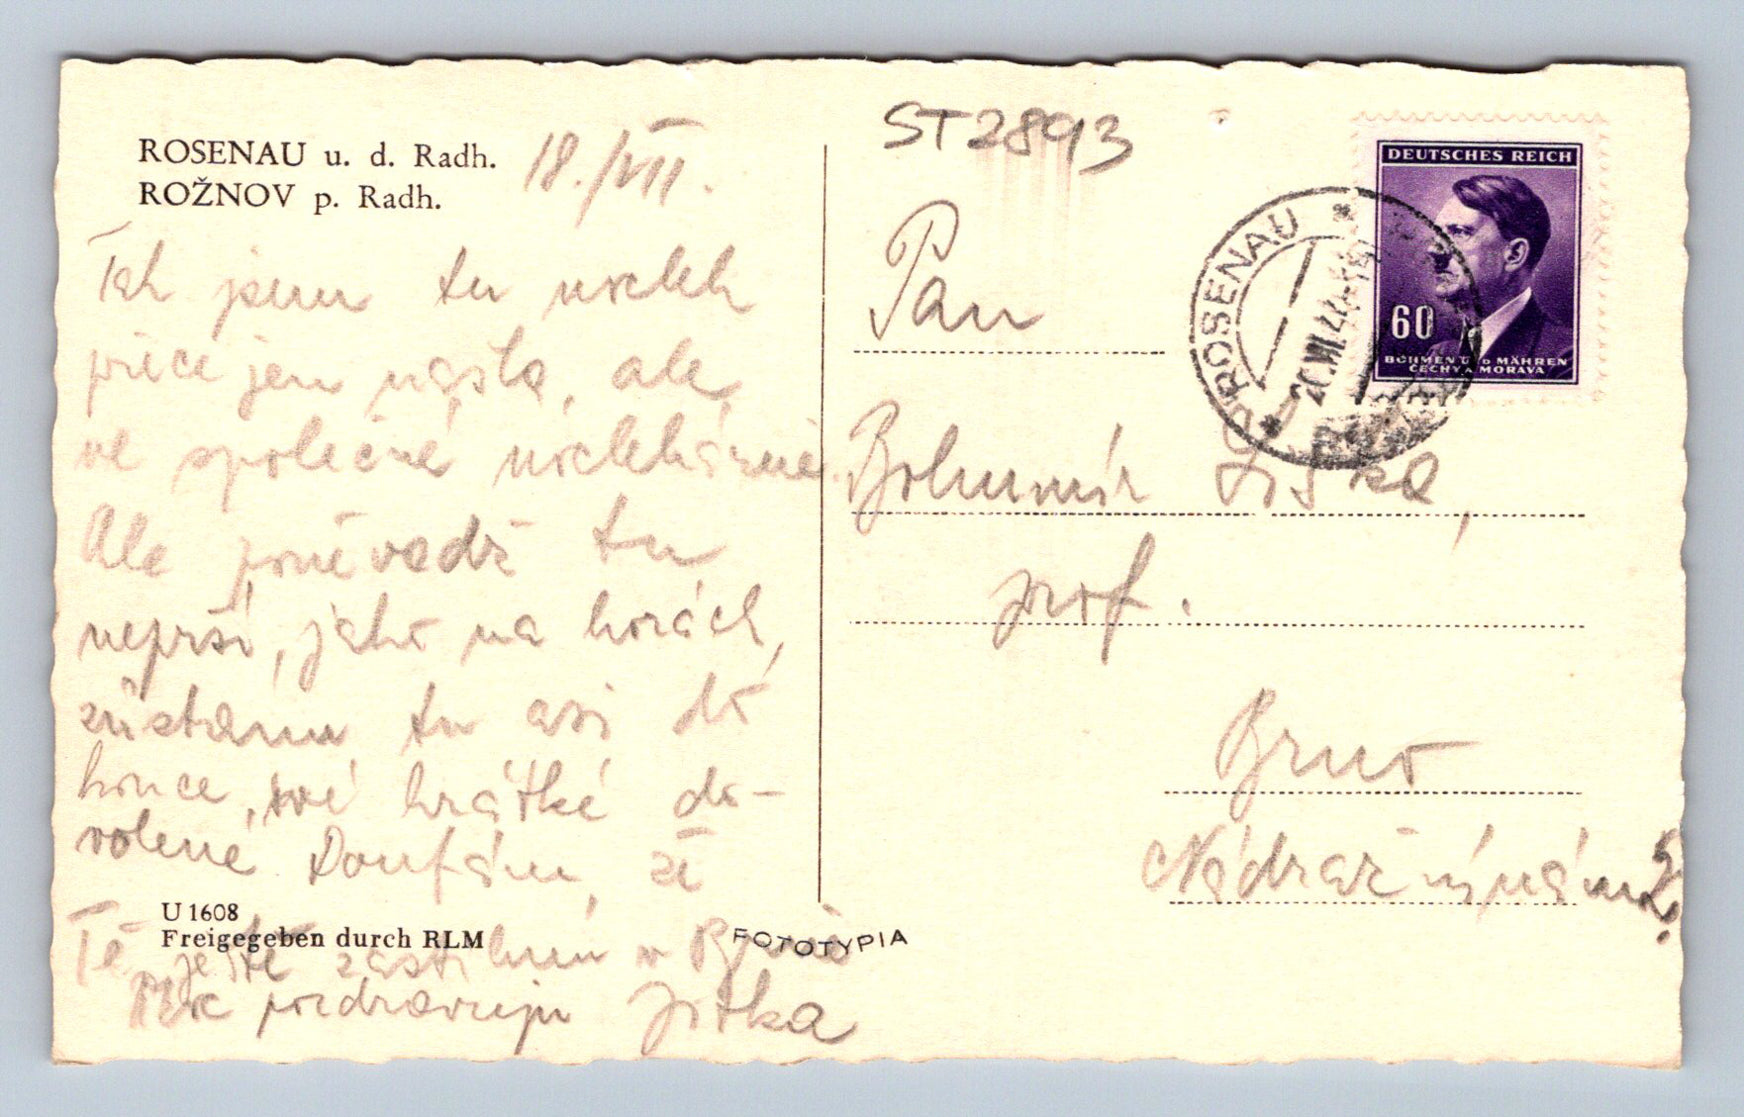 ROSENAU u. d. Radh.
ROŽNOV p. Radh.
18./VII.
Tak jsem tu
přece jen našla, ale
ve společné
Ale poněvadž tu
neprší, jako na horách,
zůstanu tu asi do
konce, své krátké do-
volené Doufám, že
Tě ještě zastihnu v Brně
pozdravuji Jitka
U 1608
Freigegeben durch RLM
FOTOTYPIA
ST2893
DEUTSCHES REICH
60
BÖHMEN UND MÄHREN
ČECHY A MORAVA
ROSENAU
20.VII.44
Pan
Bohumír Liška,
prof.
Brno
Nádražní nám.